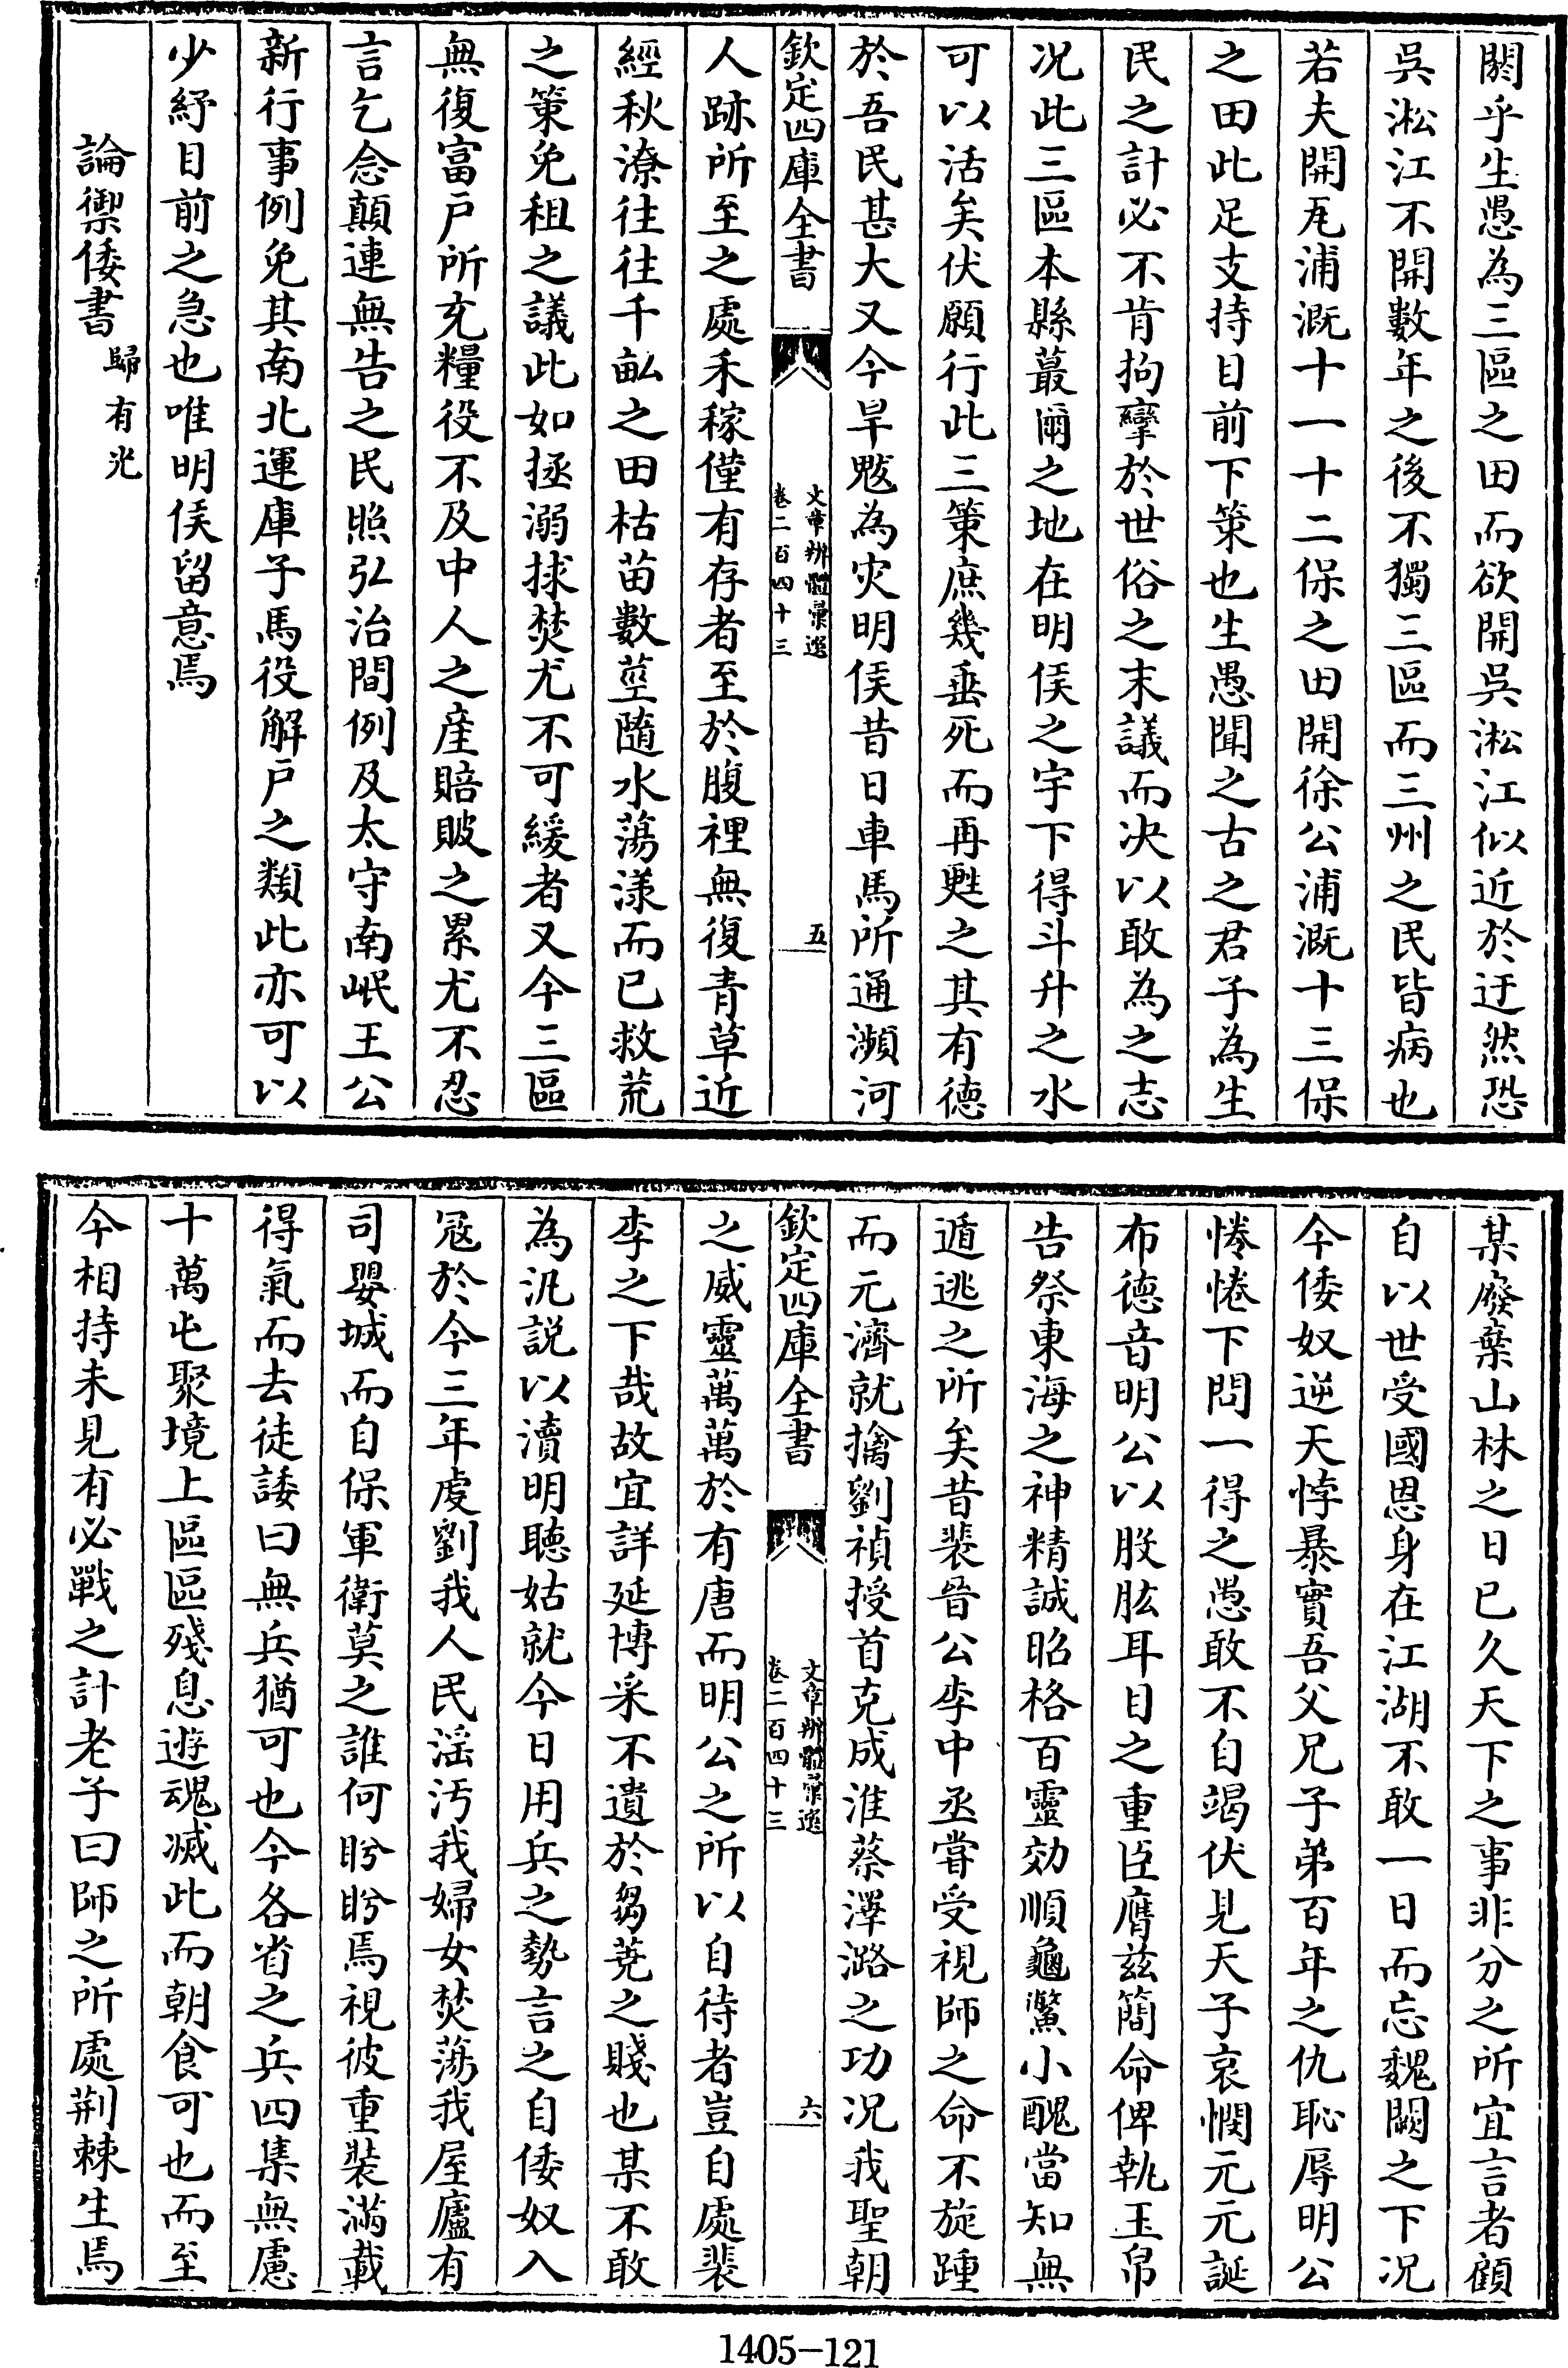 闕乎生愚為三區之田而欲開吳淞江似近於迂然恐
吳淞江不開數年之後不獨三區而三州之民皆病也
若夫開瓦浦溉十一十二保之田開徐公浦溉十三保
之田此足支持目前下策也生愚聞之古之君子為生
民之計必不肯拘攣於世俗之末議而决以敢為之志
况此三區本縣蕞爾之地在明侯之宇下得斗升之水
可以活矣伏願行此三策庶幾垂死而再甦之其有德
於吾民甚大又今旱魃為灾明侯昔日車馬所通瀕河
欽定四庫全書
文章辨體彙選
卷二百四十三
五
人跡所至之處禾稼僅有存者至於腹裡無復青草近
經秋潦往往千畝之田枯苗數莖隨水蕩漾而已救荒
之策免租之議此如拯溺捄焚尤不可緩者又今三區
無復富户所充糧役不及中人之產賠貱之累尤不忍
言乞念顛連無告之民照弘治間例及太守南岷王公
新行事例免其南北運庫子馬役解户之類此亦可以
少紓目前之急也唯明侯留意焉
論禦倭書 歸有光
某廢棄山林之日已久天下之事非分之所宜言者顧
自以世受國恩身在江湖不敢一日而忘魏闕之下况
今倭奴逆天悖暴實吾父兄子弟百年之仇恥辱明公
惓惓下問一得之愚敢不自竭伏見天子哀憫元元誕
布德音明公以股肱耳目之重臣膺兹簡命俾執玉帛
告祭東海之神精誠昭格百靈効順龜鱉小醜當知無
遁逃之所矣昔裴晉公李中丞嘗受視師之命不旋踵
而元濟就擒劉禎授首克成淮蔡澤潞之功况我聖朝
欽定四庫全書
文章辨體彙選
卷二百四十三
六
之威靈萬萬於有唐而明公之所以自待者豈自處裴
李之下哉故宜詳延博采不遺於芻蕘之賤也某不敢
為汎説以瀆明聽姑就今日用兵之勢言之自倭奴入
寇於今三年虔劉我人民滛汚我婦女焚蕩我屋廬有
司嬰城而自保軍衛莫之誰何盻盻焉視彼重裝滿載
得氣而去徒諉曰無兵猶可也今各省之兵四集無慮
十萬屯聚境上區區殘息遊魂滅此而朝食可也而至
今相持未見有必戰之計老子曰師之所處荆棘生焉
1405-121